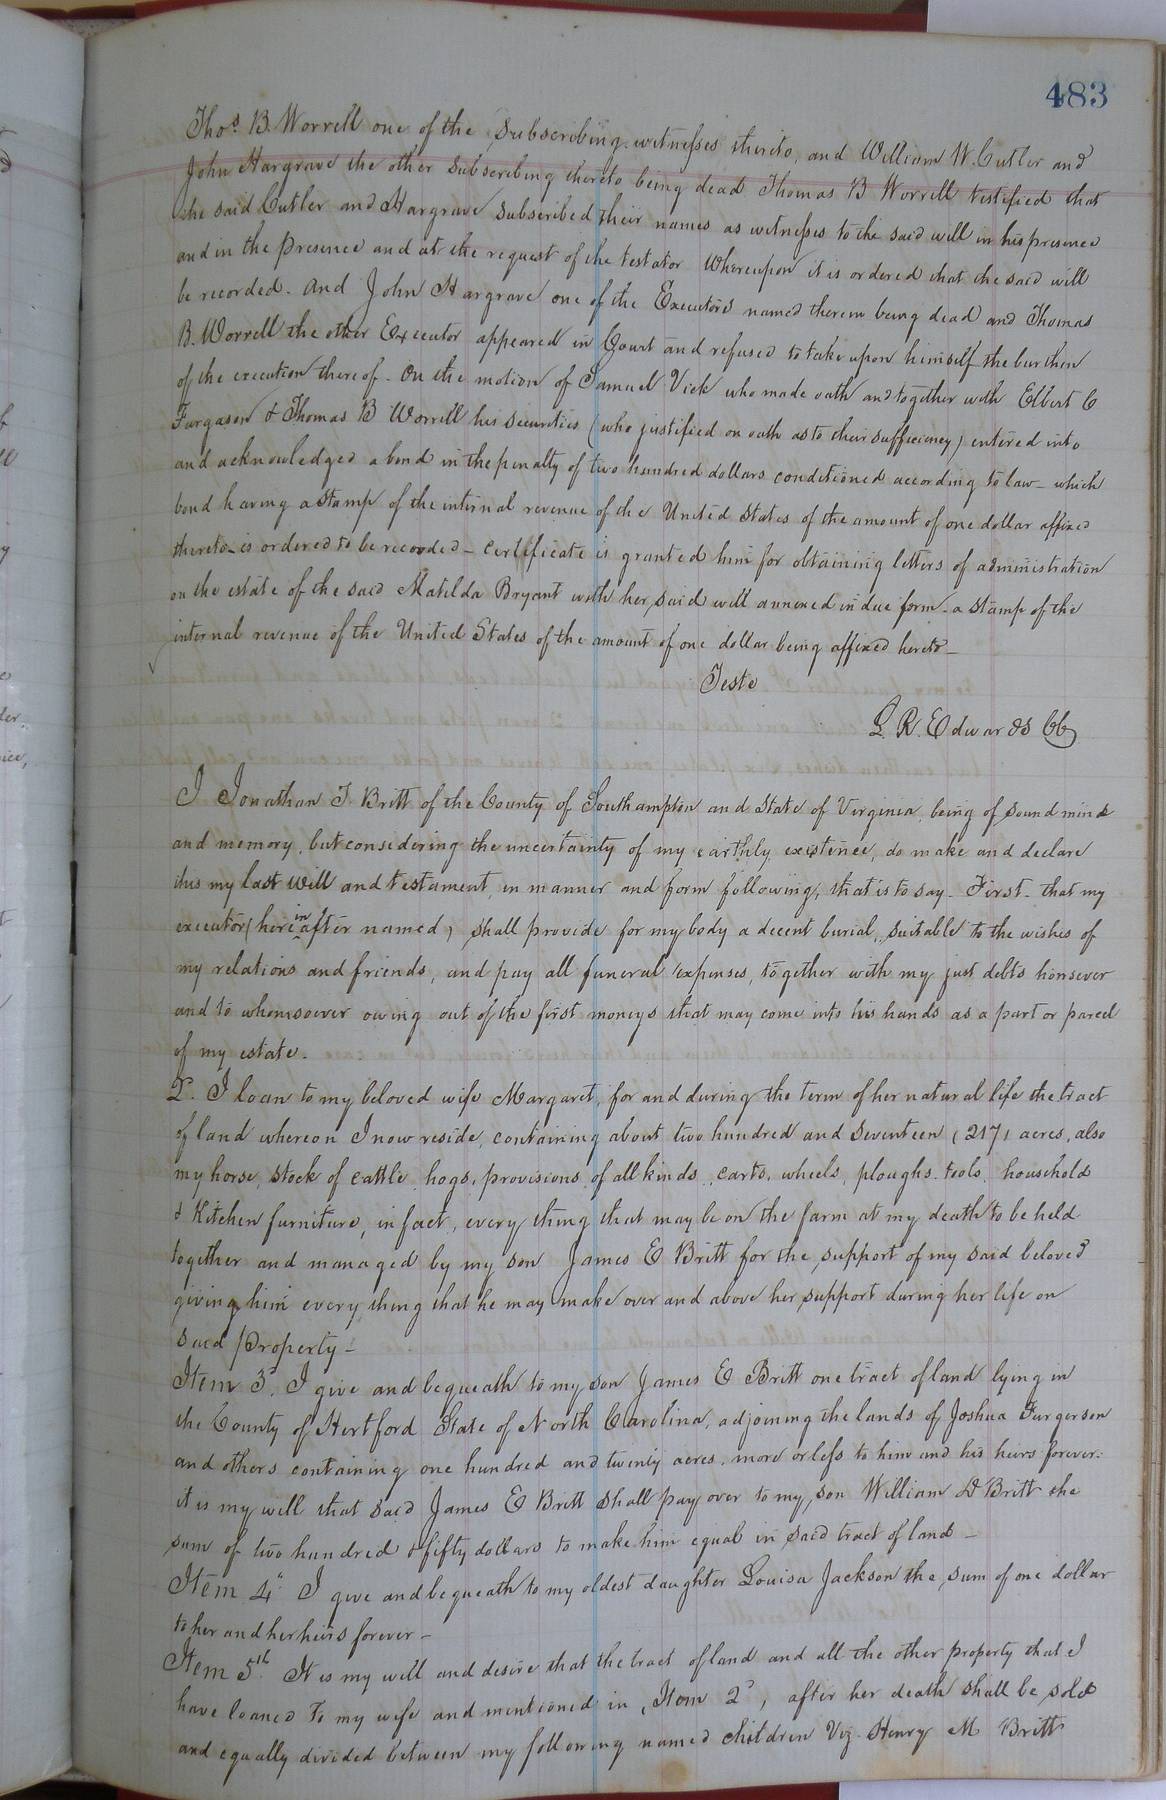 483
Thos. B. Worrell one of the Subscribing witnesses thereto, and William W. Cutler and
John Hargrave the other Subscribing thereto being dead Thomas B Worrell testified that
the said Cutler and Hargrave Subscribed their names as witnesses to the said will in his presence
and in the presence and at the request of the testator Whereupon it is ordered that the said will
be recorded. And John Hargrave one of the Executors named therein being dead and Thomas
B. Worrell the other Executor appeared in Court and refused to take upon himself the burthen
of the execution thereof. On the motion of Samuel Vick who made oath and together with Elbert C
Furgason & Thomas B Worrell his securities (who justified on oath as to their sufficiency) entered into
and acknowledged a bond in the penalty of two hundred dollars conditioned according to law - which
bond having a stamp of the internal revenue of the United States of the amount of one dollar affixed
thereto is ordered to be recorded - certificate is granted him for obtaining letters of administration
on the estate of the said Matilda Bryant with her said will annexed in due form - a stamp of the
internal revenue of the United States of the amount of one dollar being affixed hereto -
Teste
L. R. Edwards CC
I Jonathan T Britt of the County of Southampton and State of Virginia, being of sound mind
and memory, but considering the uncertainty of my earthly existence, do make and declare
this my last Will and testament, in manner and form following, that is to say. First. that my
executor (hereinafter named) shall provide for my body a decent burial, suitable to the wishes of
my relations and friends, and pay all funeral expenses, together with my just debts honsever
and to whomsoever owing out of the first moneys that may come into his hands as a part or parcel
of my estate.
2. I loan to my beloved wife Margaret, for and during the term of her natural life the tract
of land whereon I now reside, containing about two hundred and seventeen (217) acres, also
my horse, stock of cattle, hogs, provisions of all kinds, carts, wheels, ploughs, tools, household
& Kitchen furniture, in fact, every thing that may be on the farm at my death to be held
together and managed by my son James E Britt for the support of my said beloved
giving him every thing that he may make over and above her support during her life on
said Property -
Item 3d. I give and bequeath to my son James E Britt one tract of land lying in
the County of Hertford State of North Carolina, adjoining the lands of Joshua Furgerson
and others containing one hundred and twenty acres, more or less to him and his heirs forever.
it is my will that said James E Britt shall pay over to my son William D Britt the
sum of two hundred & fifty dollars to make him equal in said tract of land -
Item 4" I give and bequeath to my oldest daughter Louisa Jackson the sum of one dollar
to her and her heirs forever -
Item 5th. It is my will and desire that the tract of land and all the other property that I
have loaned to my wife and mentioned in Item 2d, after her death shall be sold
and equally divided between my following named children Viz. Henry M Britt